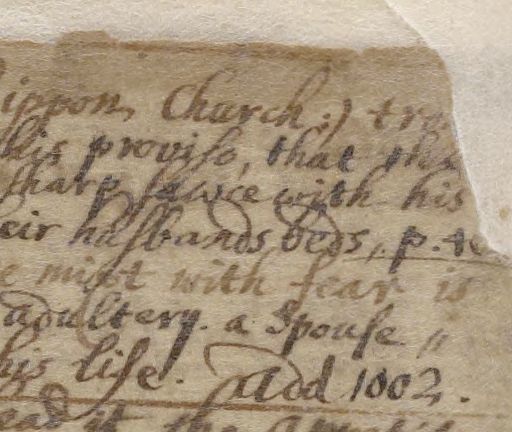 ippon, Church:) tra
his proviso, that the
sharp sawce with his
eir husbands beds, p. 4
e mixt with fear is
adultery. a Spouse „
his life. Add 1002.